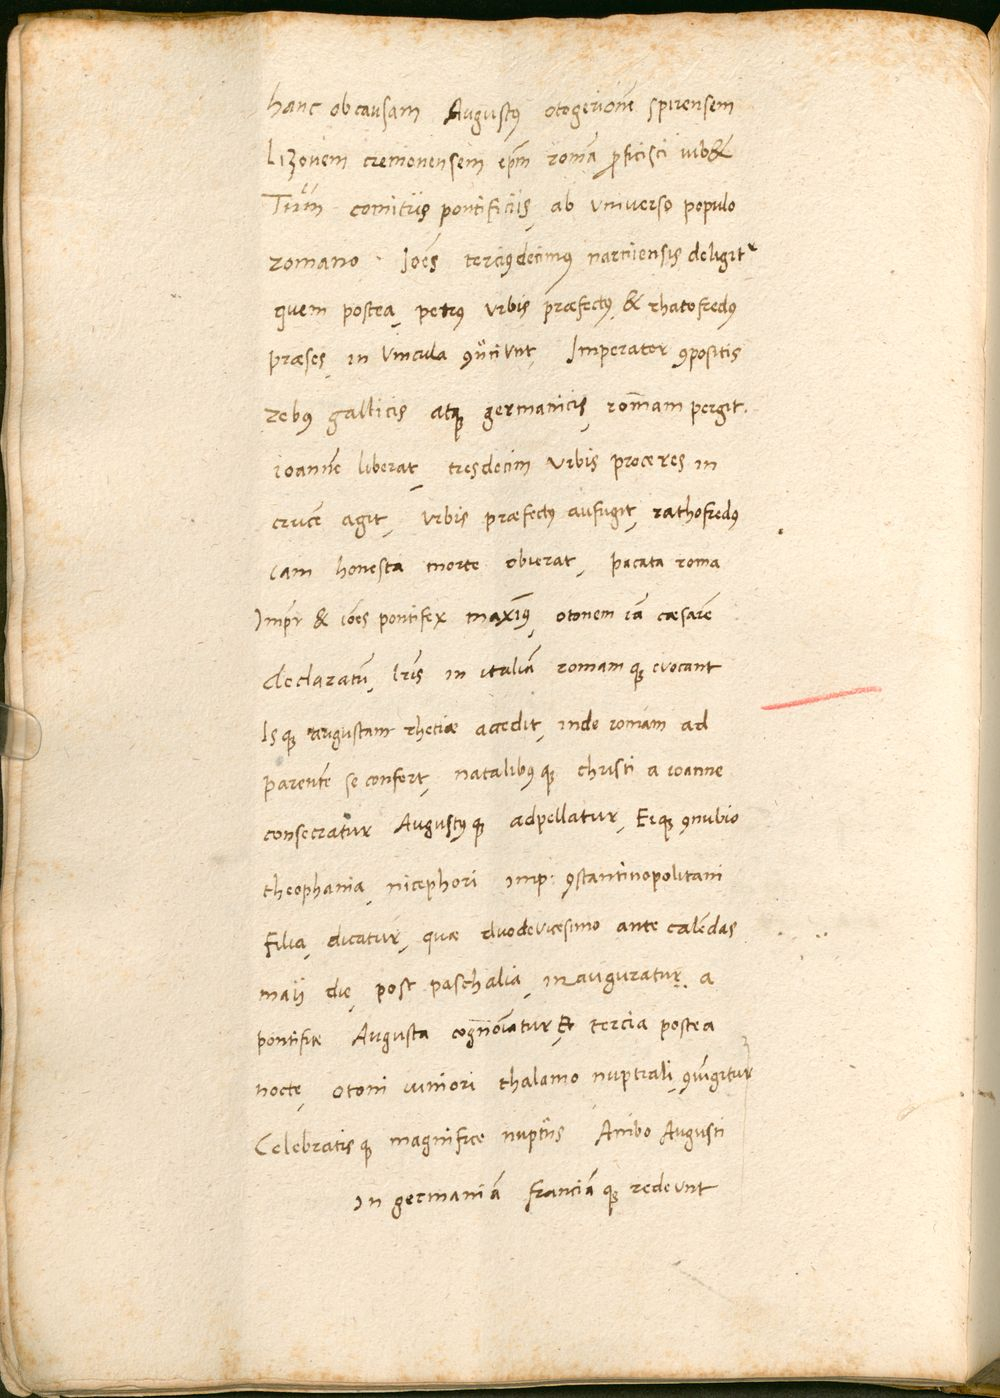 hanc ob causam Augustꝰ otogerionē spirensem
Lizonem cremonensem ep̄m romā ꝓficisci iub&
Tum comitiis pontificiis, ab vniverso populo
romano · Joēs terciꝰdecimꝰ narniensis deligit᷑
quem postea, petrꝰ vrbis præfectꝰ & rhatofredꝰ
præses, in vincula ꝯiiciunt, Imperator ꝯpositis
rebꝰ gallicis atqꝫ germanicis, romam pergit.
ioannē liberat, tresdecim vrbis proceres in
crucē agit, vrbis præfectꝰ aufugit, rathofredꝰ
iam honesta morte obierat, pacata roma
Imp̄r & ioēs pontifex maxīꝰ, otonem iā cæsarē
declaratū, lr̄is in italiā romamqꝫ evocant
Isqꝫ augustam rhetiæ accedit, inde romam ad
parentē se confert, natalibꝰqꝫ christi a ioanne
consecratur Augustꝰqꝫ adpellatur, Eiqꝫ ꝯnubio
theophania, nicephori imp: ꝯstantinopolitani
filia, dicatur, quæ duodevicesimo ante calēdas
maij die, post paschalia, inauguratur, a
pontifice Augusta cognōiatur, Et tercia postea
nocte, otoni iuniori thalamo nuptiali, ꝯiūgitur
Celebratisqꝫ magnifice nuptiis Ambo Augusti
in germaniā franciāqꝫ redeunt